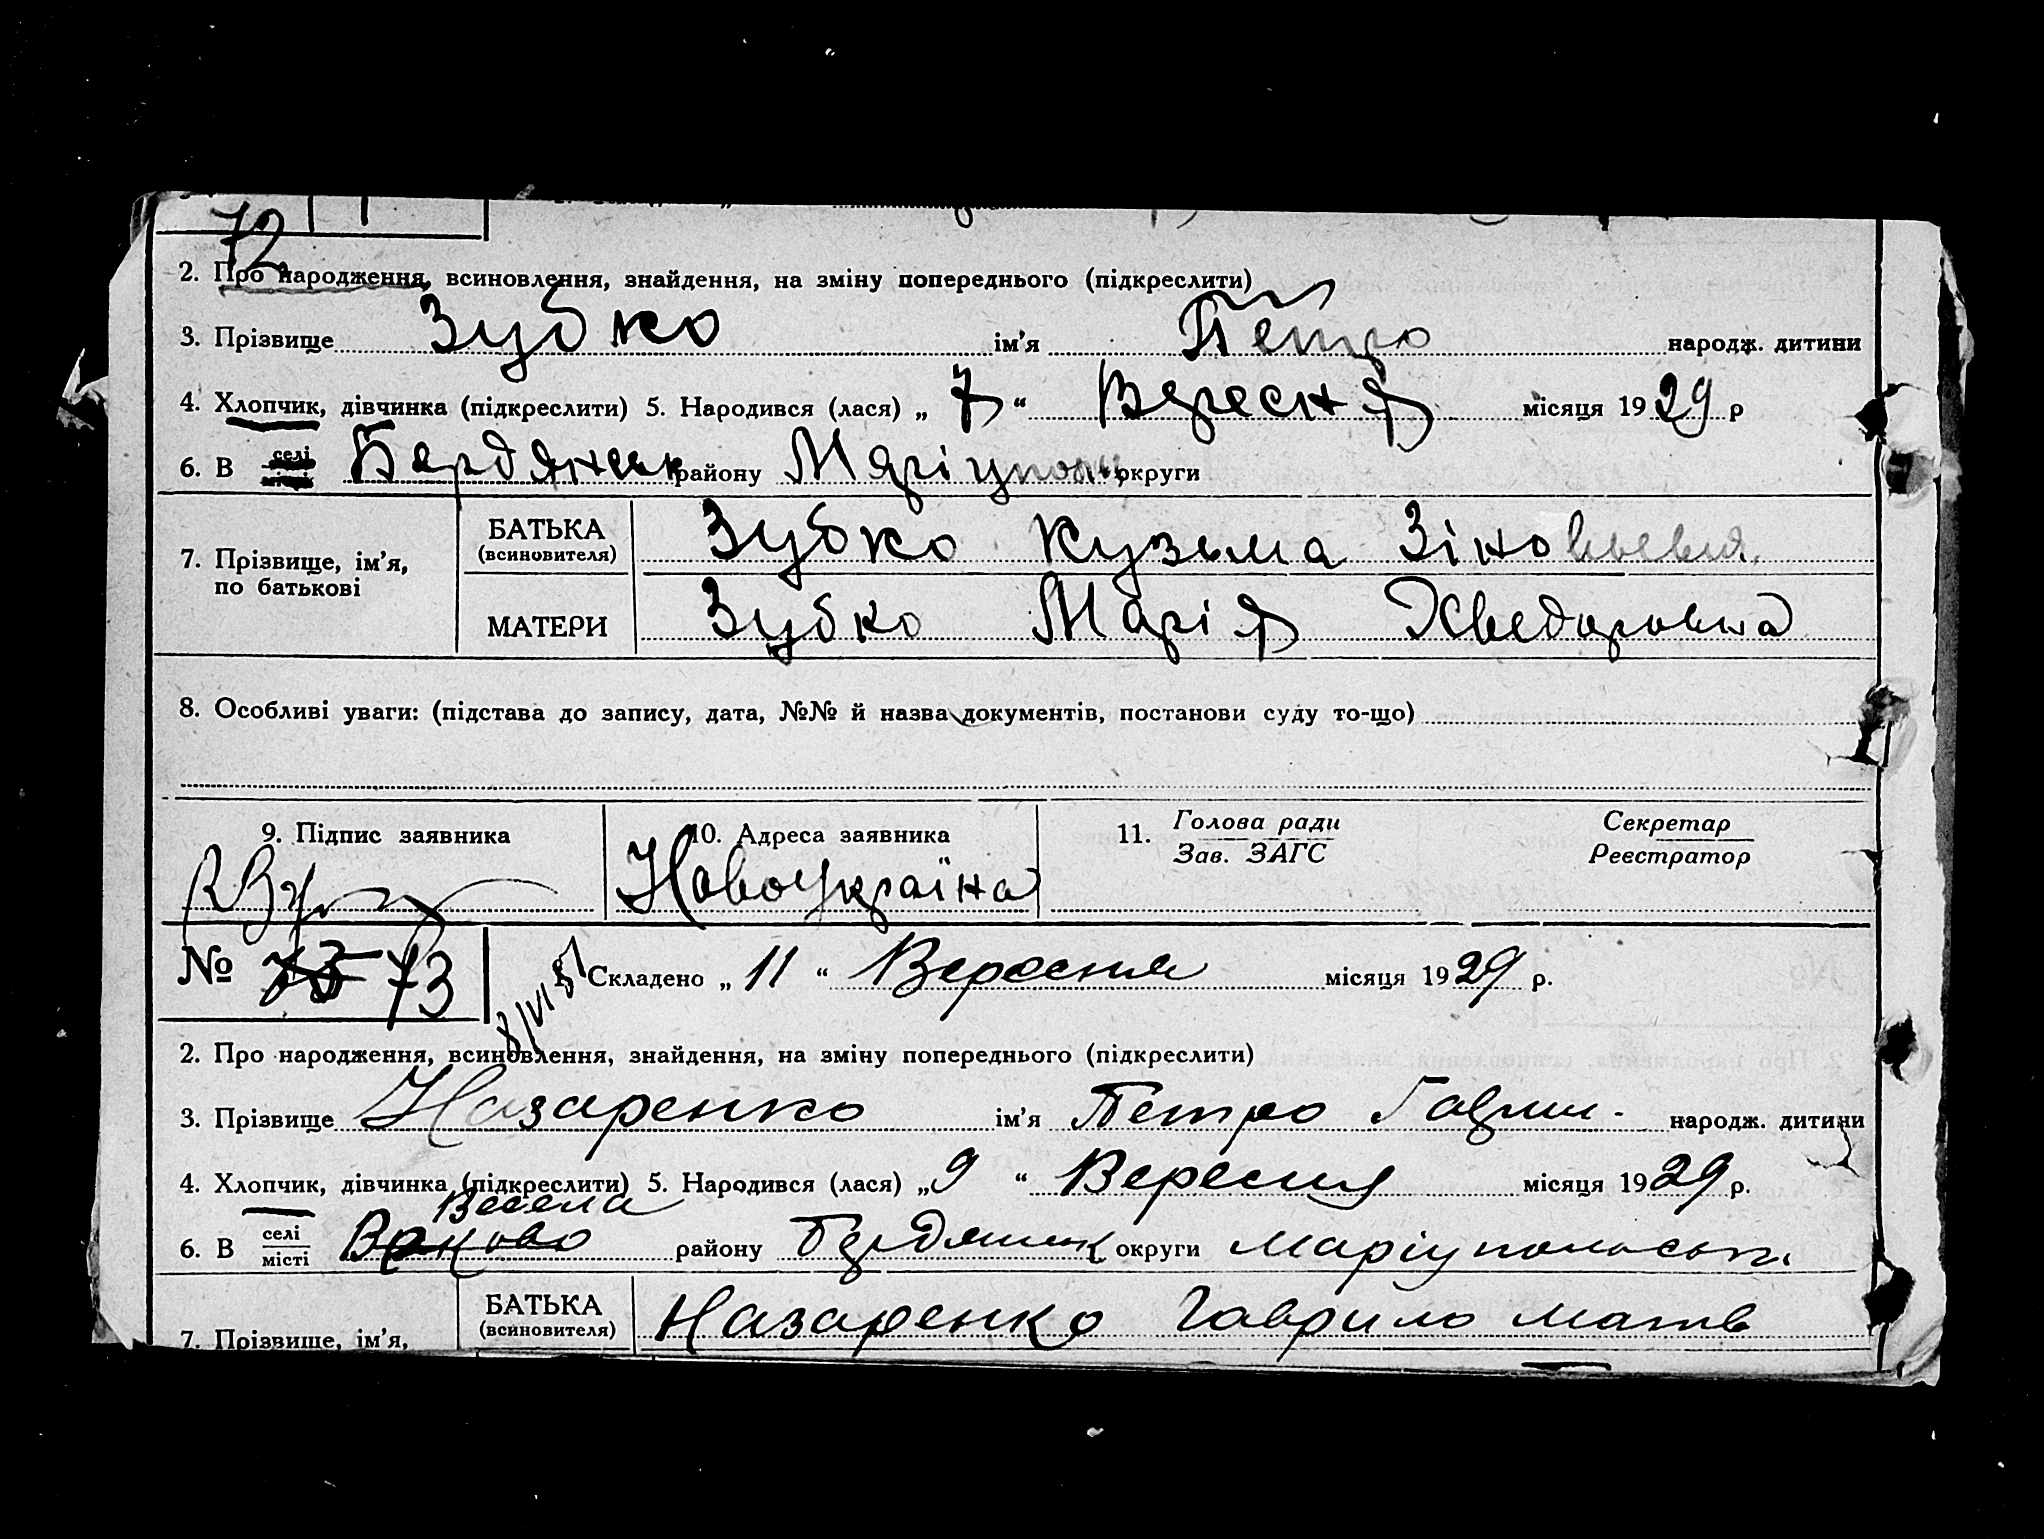 72
2. Про народження, всиновлення, знайдення, на зміну попереднього (підкреслити)
3. Прізвище Зубко ім'я Петро народж. дитини
4. Хлопчик, дівчинка (підкреслити) 5. Народився (лася) „ 7 “ Вересня місяця 1929 р
6. В селі місті Бердянськ району Маріупольс округи
7. Прізвище, ім'я, по батькові
БАТЬКА (всиновителя) Зубко Кузьма
МАТЕРИ Зубко Марія Хведоровна
8. Особливі уваги: (підстава до запису, дата, №№ й назва документів, постанови суду то-що)
9. Підпис заявника 10. Адреса заявника 11. Голова ради Секретар
Зав. ЗАГС Реєстратор
Новоукраїна
№ 73 Складено „ 11 “ Вересня місяця 1929 р.
2. Про народження, всиновлення, знайдення, на зміну попереднього (підкреслити)
3. Прізвище Назаренко ім'я Петро Гаврил. народж. дитини
4. Хлопчик, дівчинка (підкреслити) 5. Народився (лася) „ 9 “ Вересня місяця 1929 р.
Весела
6. В селі місті району Бердянськ округи Маріупольськ.
7. Прізвище, ім'я,
БАТЬКА (всиновителя) Назаренко Гаврило Матв